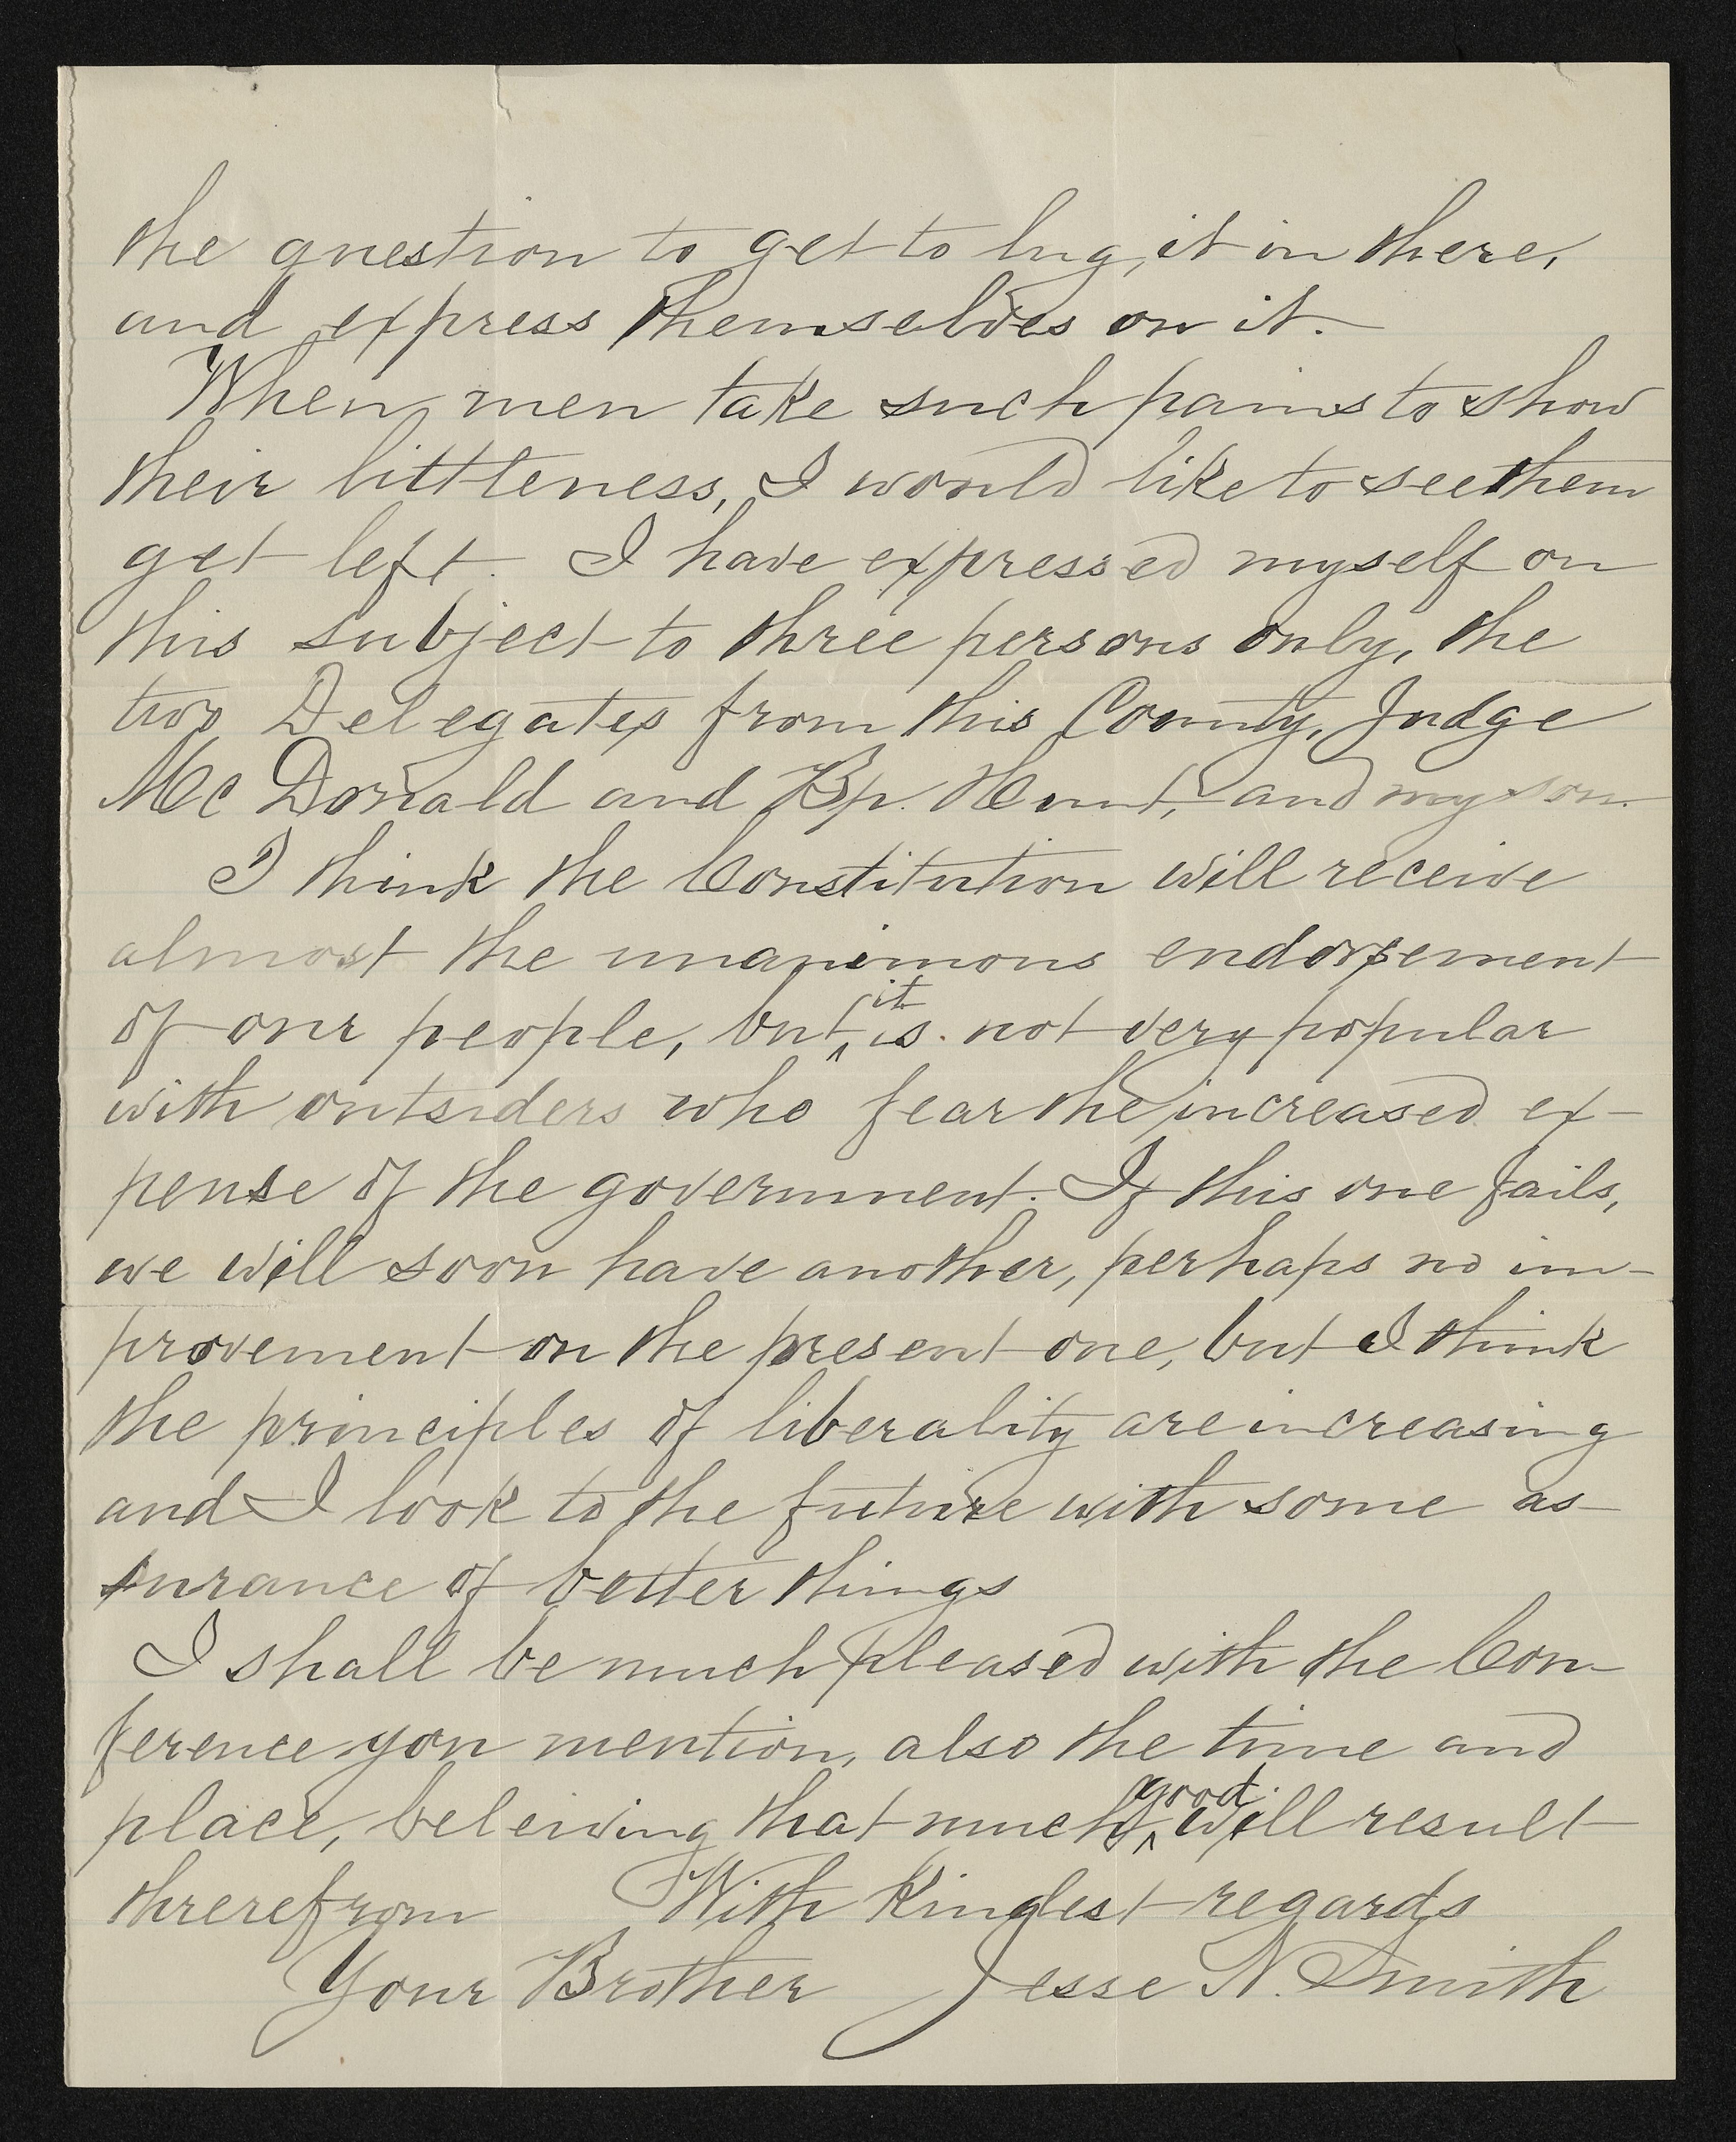 the question to get to lug it in there,
and express themselves on it.
When men take such pains to show
their littleness, I would like to see them
get left. I have expressed myself on
this subject to three persons only, the
two Delegates from this County, Judge
McDonald and Bp. Hunt, and my son.
I think the Constitution will receive
almost the unanimous endorsement
of our people, but it is not very popular
with outsiders who fear the increased ex-
pense of the government. If this one fails,
we will soon have another, perhaps no im-
provement on the present one, but I think
the principles of liberality are increasing
and I look to the future with some as-
surance of better things
I shall be much pleased with the Con-
ference you mention, also the time and
place, beleiving that much good will result
threrefrom With kindest regards
Your Brother Jesse N. Smith